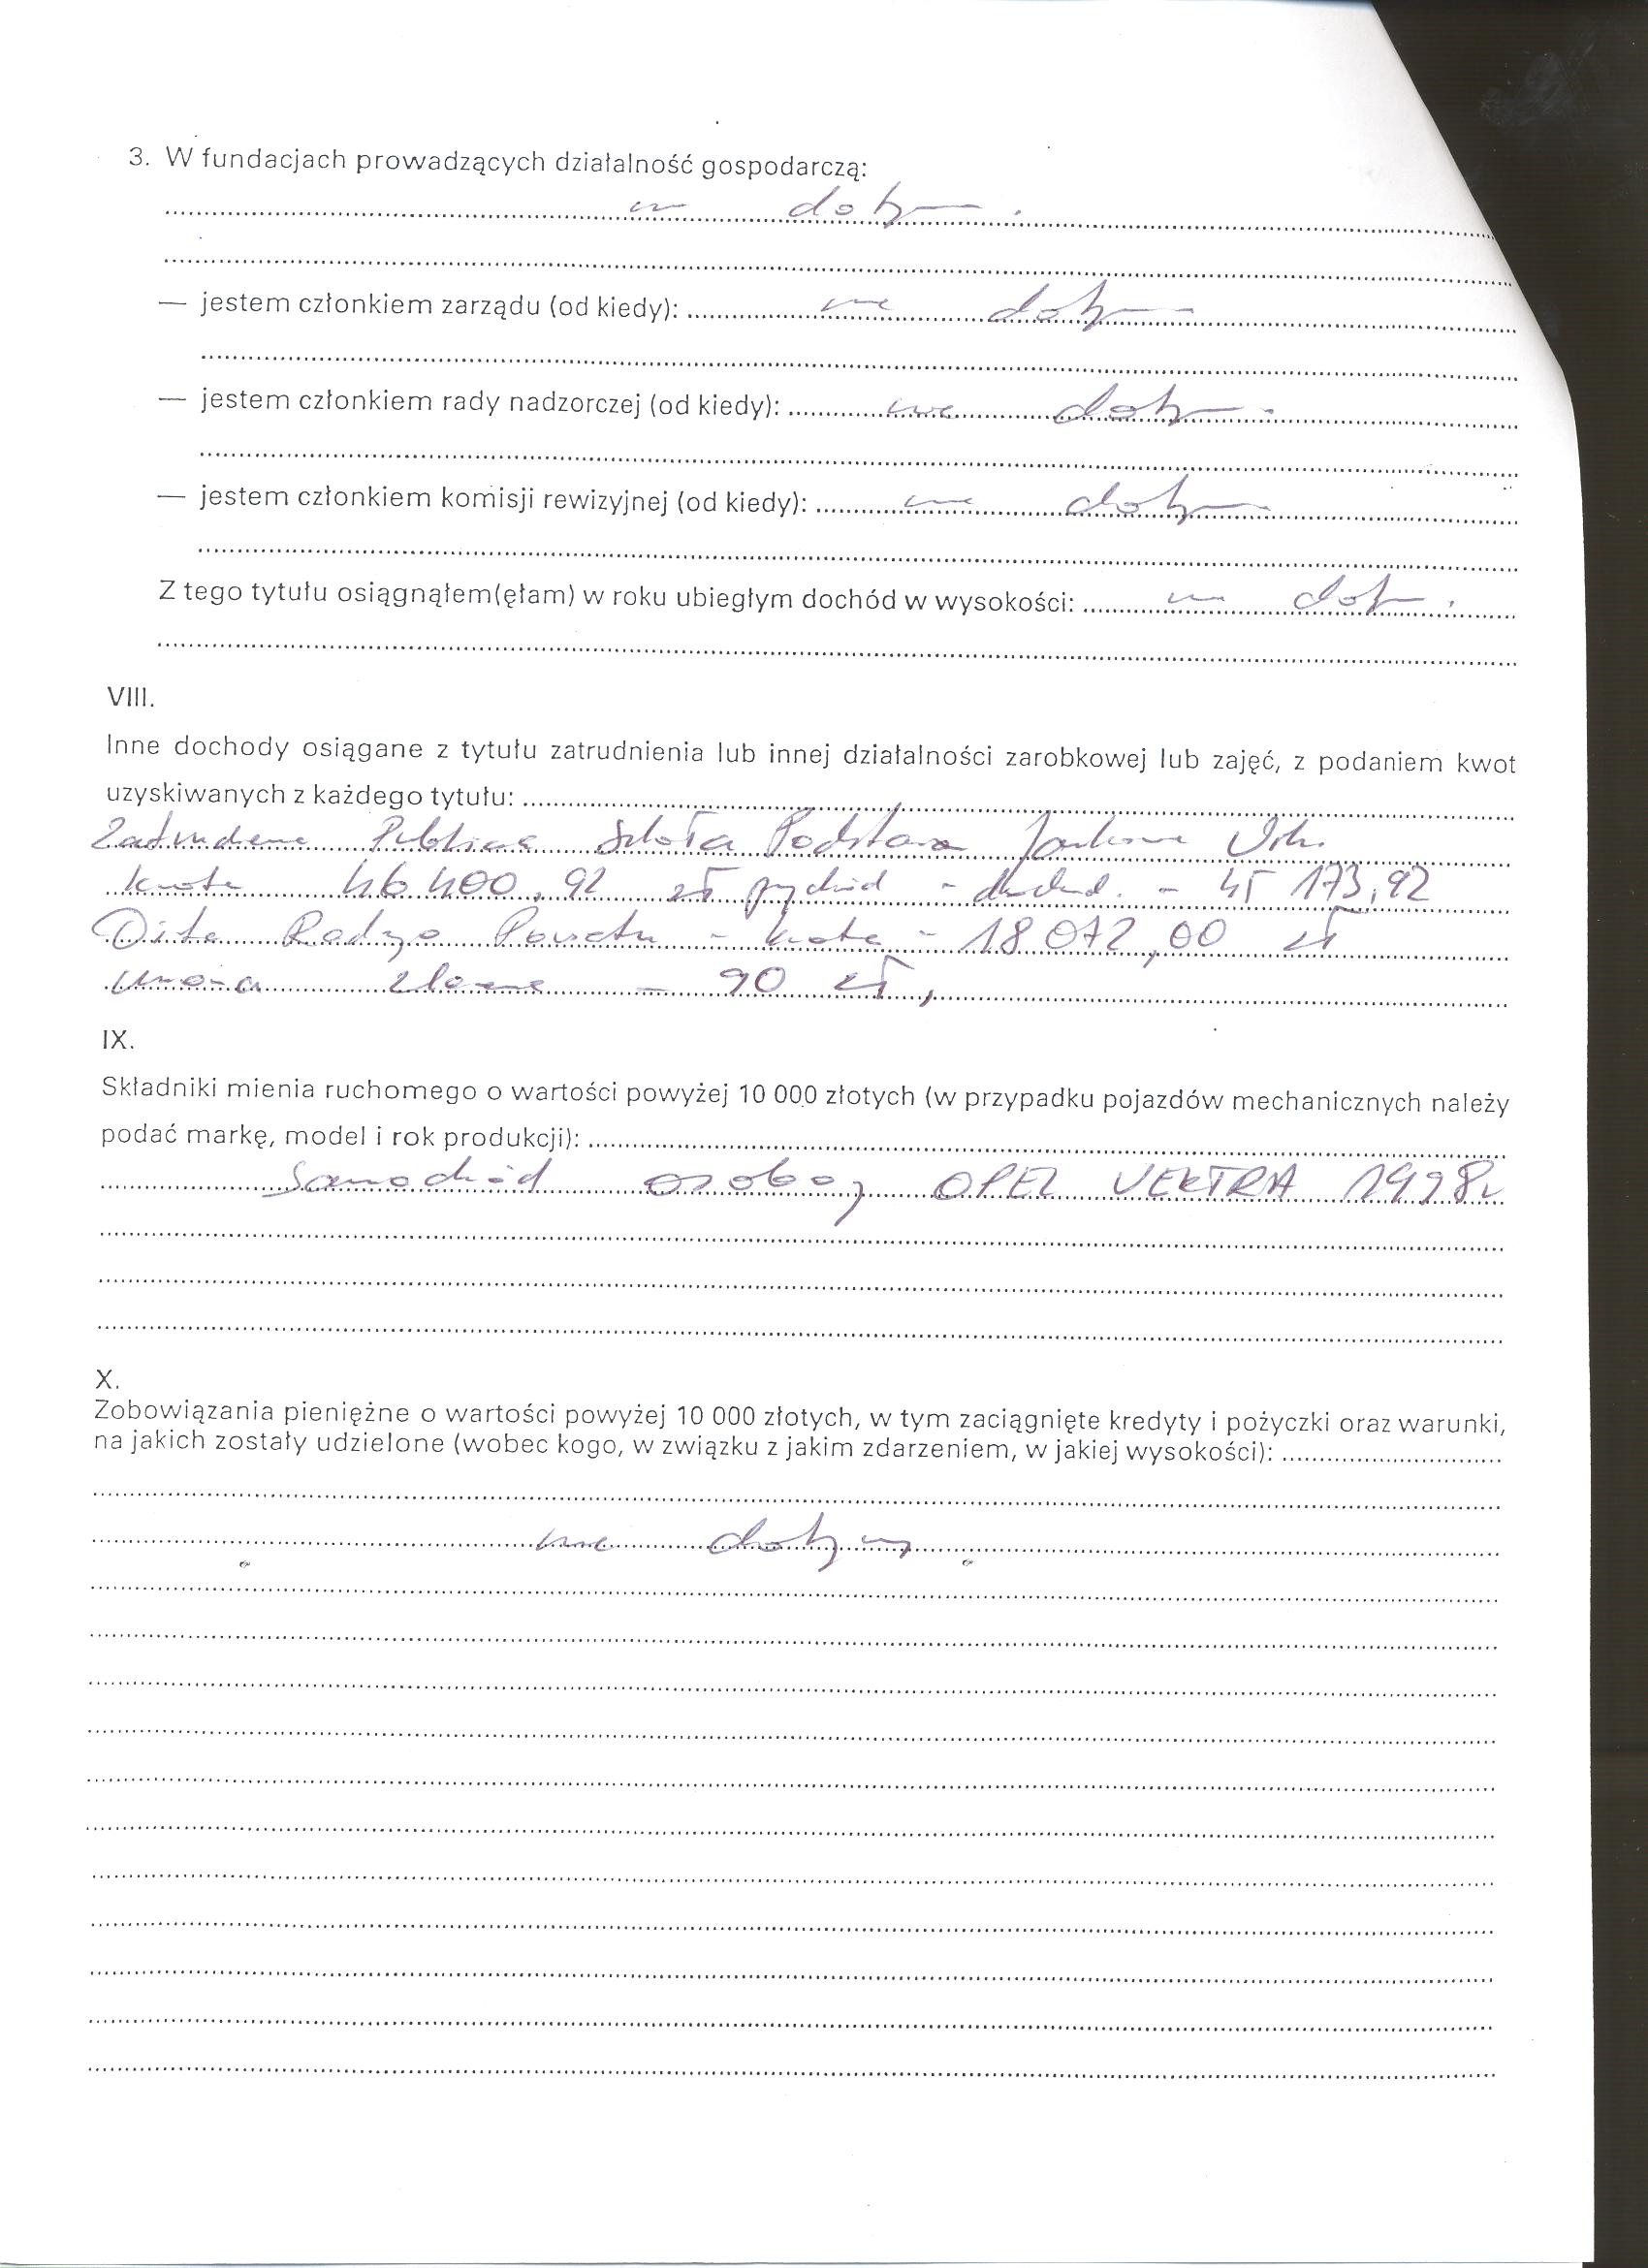 3. W fundacjach prowadzących działalność gospodarczą:
nie dotyczy.
— jestem członkiem zarządu (od kiedy): nie dotyczy
— jestem członkiem rady nadzorczej (od kiedy): nie dotyczy
— jestem członkiem komisji rewizyjnej (od kiedy): nie dotyczy
Z tego tytułu osiągnąłem(ęłam) w roku ubiegłym dochód w wysokości: nie dotyczy.
VIII.
Inne dochody osiągane z tytułu zatrudnienia lub innej działalności zarobkowej lub zajęć, z podaniem kwot
uzyskiwanych z każdego tytułu:
Zatrudnienie Publiczna Szkoła Podstawowa
kwota 46 400,92 zł przychód - dochód - 45 173,92
Dieta Radnego Powiatu - kwota - 18 072,00 zł
umowa zlecenie - 90 zł,
IX.
Składniki mienia ruchomego o wartości powyżej 10 000 złotych (w przypadku pojazdów mechanicznych należy
podać markę, model i rok produkcji):
Samochód osobowy OPEL VEKTRA 1998r
X.
Zobowiązania pieniężne o wartości powyżej 10 000 złotych, w tym zaciągnięte kredyty i pożyczki oraz warunki,
na jakich zostały udzielone (wobec kogo, w związku z jakim zdarzeniem, w jakiej wysokości):
nie dotyczy